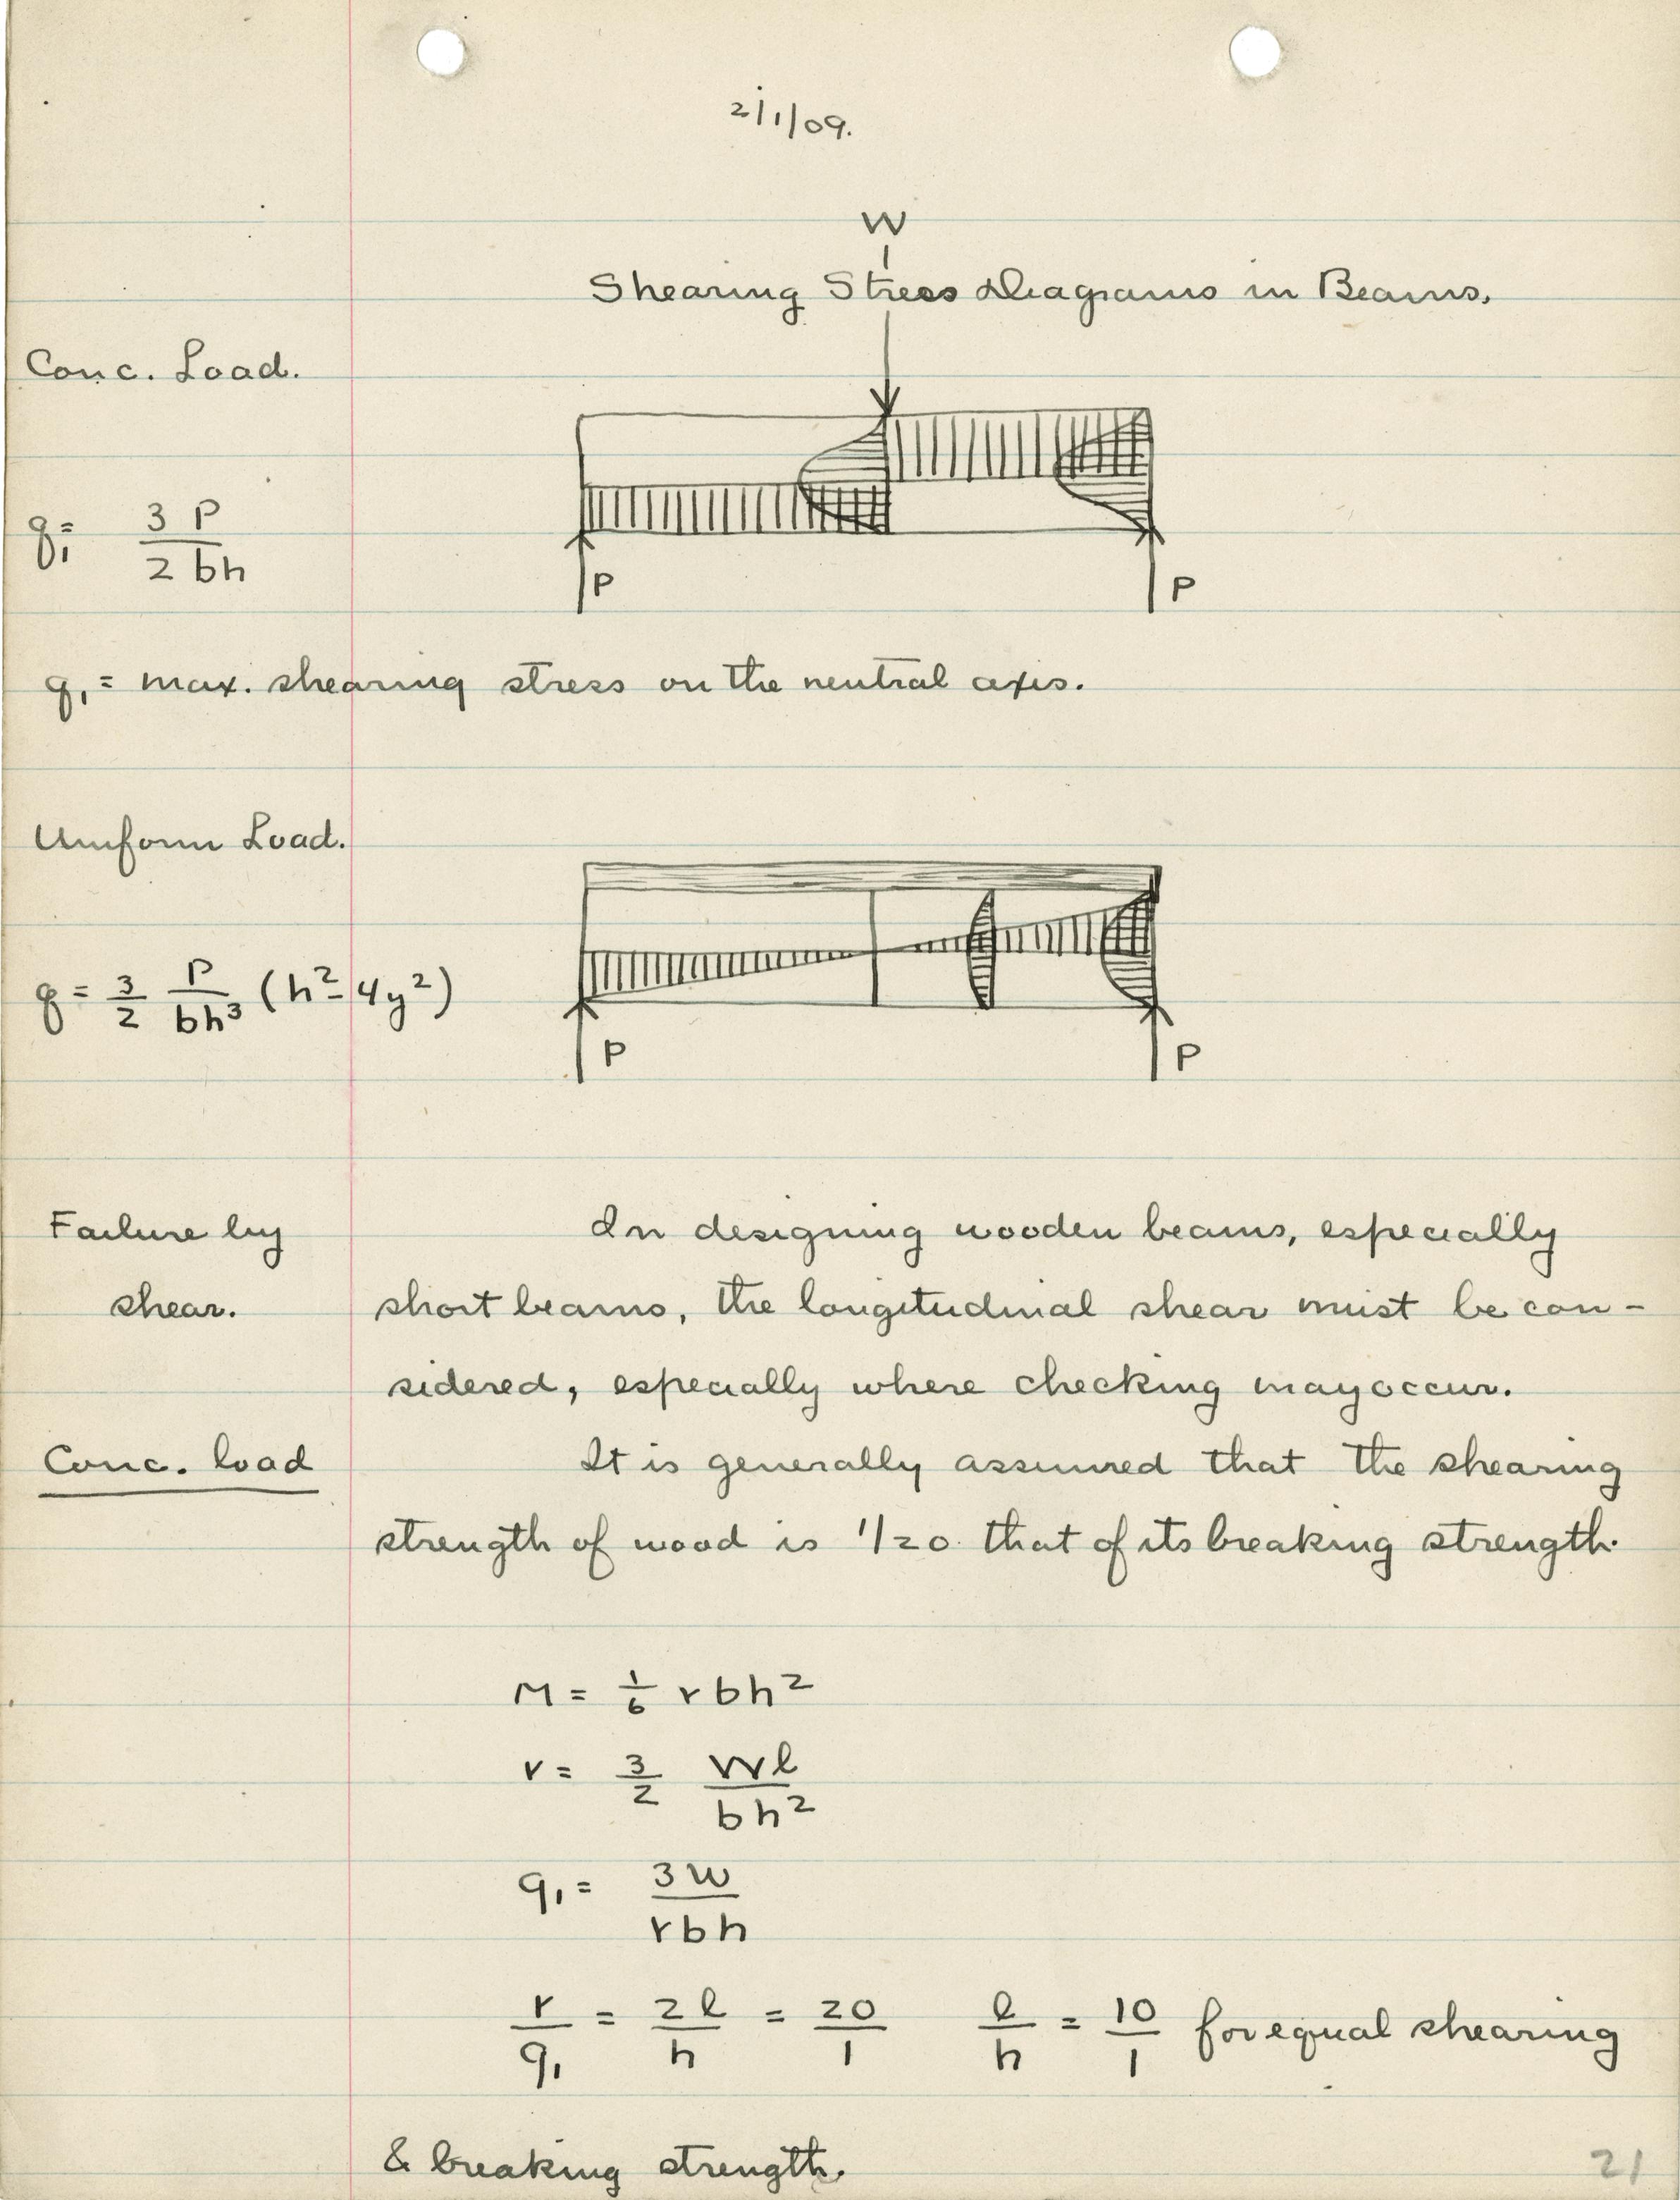 2/1/09.
W
Shearing Stress Diagrams in Beams.
Conc. Load.
q₁= 3 P / 2 bh
P P
q₁= max. shearing stress on the neutral axis.
Uniform Load.
q = 3/2 P/bh³ (h²-4y²)
P P
Failure by
shear.
In designing wooden beams, especially
short beams, the longitudinal shear must be con-
sidered, especially where checking may occur.
Conc. load
It is generally assumed that the shearing
strength of wood is 1/20 that of its breaking strength.
M = 1/6 rbh²
r = 3/2 Wl/bh²
q₁= 3W/rbh
r/q₁ = 2l/h = 20/1 l/h = 10/1 for equal shearing
& breaking strength.
21